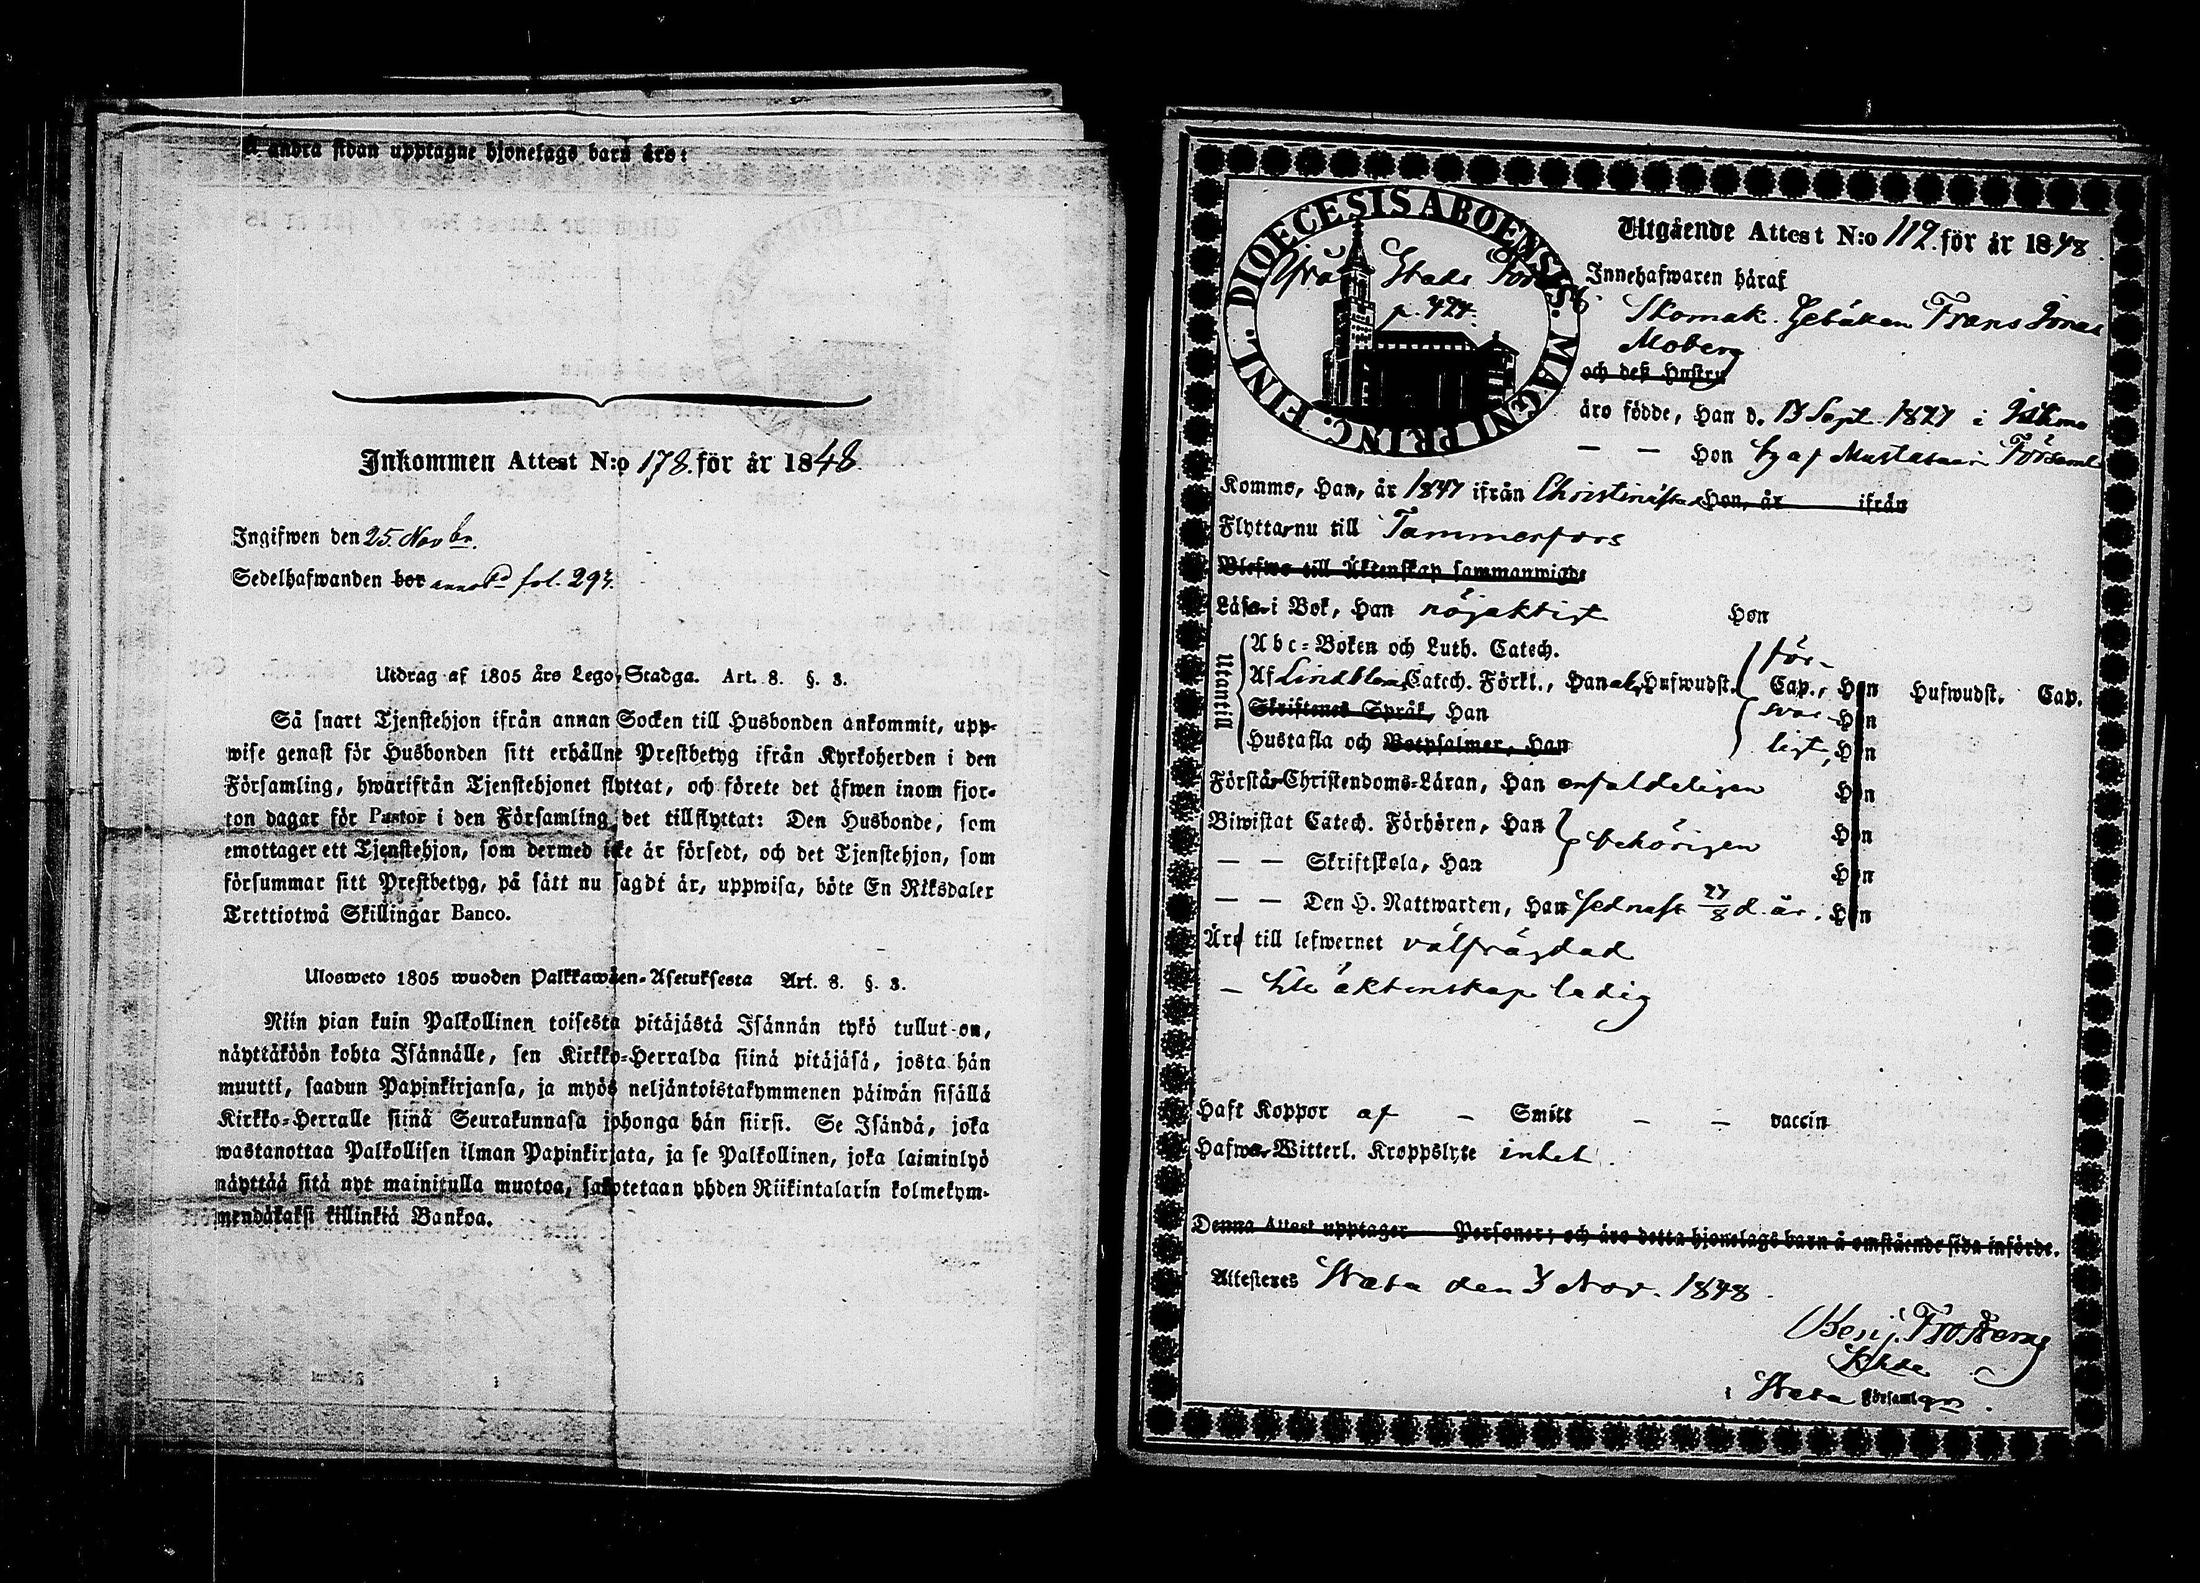 Å andra sidan upptagne hjonelags barn äro:
Inkommen Attest N:o 178. för år 1848.
Ingifwen den 25 Novbr.
Sedelhafwanden bor annot. fol. 293.
Utdrag af 1805 års Lego-Stadga. Art. 8. §. 3.
Så snart Tjenstehjon ifrån annan Socken till Husbonden ankommit, upp-
wise genast för Husbonden sitt erhållne Prestbetyg ifrån Kyrkoherden i den
Församling, hwarifrån Tjenstehjonet flyttat, och förete det äfwen inom fjor-
ton dagar för Pastor i den Församling det tillflyttat: Den Husbonde, som
emottager ett Tjenstehjon, som dermed icke är försedt, och det Tjenstehjon, som
försummar sitt Prestbetyg, på sätt nu sagdt är, uppwisa, böte En Riksdaler
Trettiotwå Skillingar Banco.
Ulosweto 1805 wuoden Palkkawäen-Asetuksesta Art. 8. §. 3.
Niin pian kuin Palkollinen toisesta pitäjästä Isännän tykö tullut on,
näyttäköön kohta Isännälle, sen Kirkko-Herralda siinä pitäjäsä, josta hän
muutti, saadun Papinkirjansa, ja myös neljäntoistakymmenen päiwän sisällä
Kirkko-Herralle siinä Seurakunnasa johonga hän siirsi. Se Isändä, joka
wastanottaa Palkollisen ilman Papinkirjata, ja se Palkollinen, joka laiminlyö
näyttää sitä nyt mainitulla muotoa, sakotetaan yhden Riikintalarin kolmekym-
mendäkaksi killinkiä Bankoa.
DIOECESIS ABOENSIS. MAGNI PRINC. FINL.
Ifrån Stads
p. 424.
Utgående Attest N:o 112. för år 1848
Innehafwaren häraf
Skomak. Gesällen Frans Jonas
Moberg
och dess Hustru
äro födde, Han d. 13 Sept. 1827 i
— — Hon Församl
Kommo, Han, år 1847 ifrån Christinestad Hon, år ifrån
Flytta nu till Tammerfors
Blefwo till Äktenskap sammanwigde
Läsa i Bok, Han nöjaktigt Hon
Utantill
Abc-Boken och Luth. Catech. för-
Af Lindbloms Catech. Förkl., Han Hufwudst. Cap., Hon Hufwudst. Cap.
Skriftenes Språk, Han svar- Hon
Hustafla och Botpsalmer, Han ligt, Hon
Förstå Christendoms-Läran, Han enfaldeligen Hon
Biwistat Catech. Förhören, Han behörigen Hon
— — Skriftskola, Han Hon
— — Den H. Nattwarden, Han sednast 27/8 d. år. Hon
Äro till lefwernet välfrägdad
— till äktenskap ledig
Haft Koppor af — Smitt — — vaccin
Hafwa Witterl. Kroppslyte intet.
Denna Attest upptager Personer; och äro detta hjonelags barn å omstående sida införde.
Attesteres Wasa den 3 Nov. 1848.
Benj. Frosterus
Khde
i Wasa Församlgn.